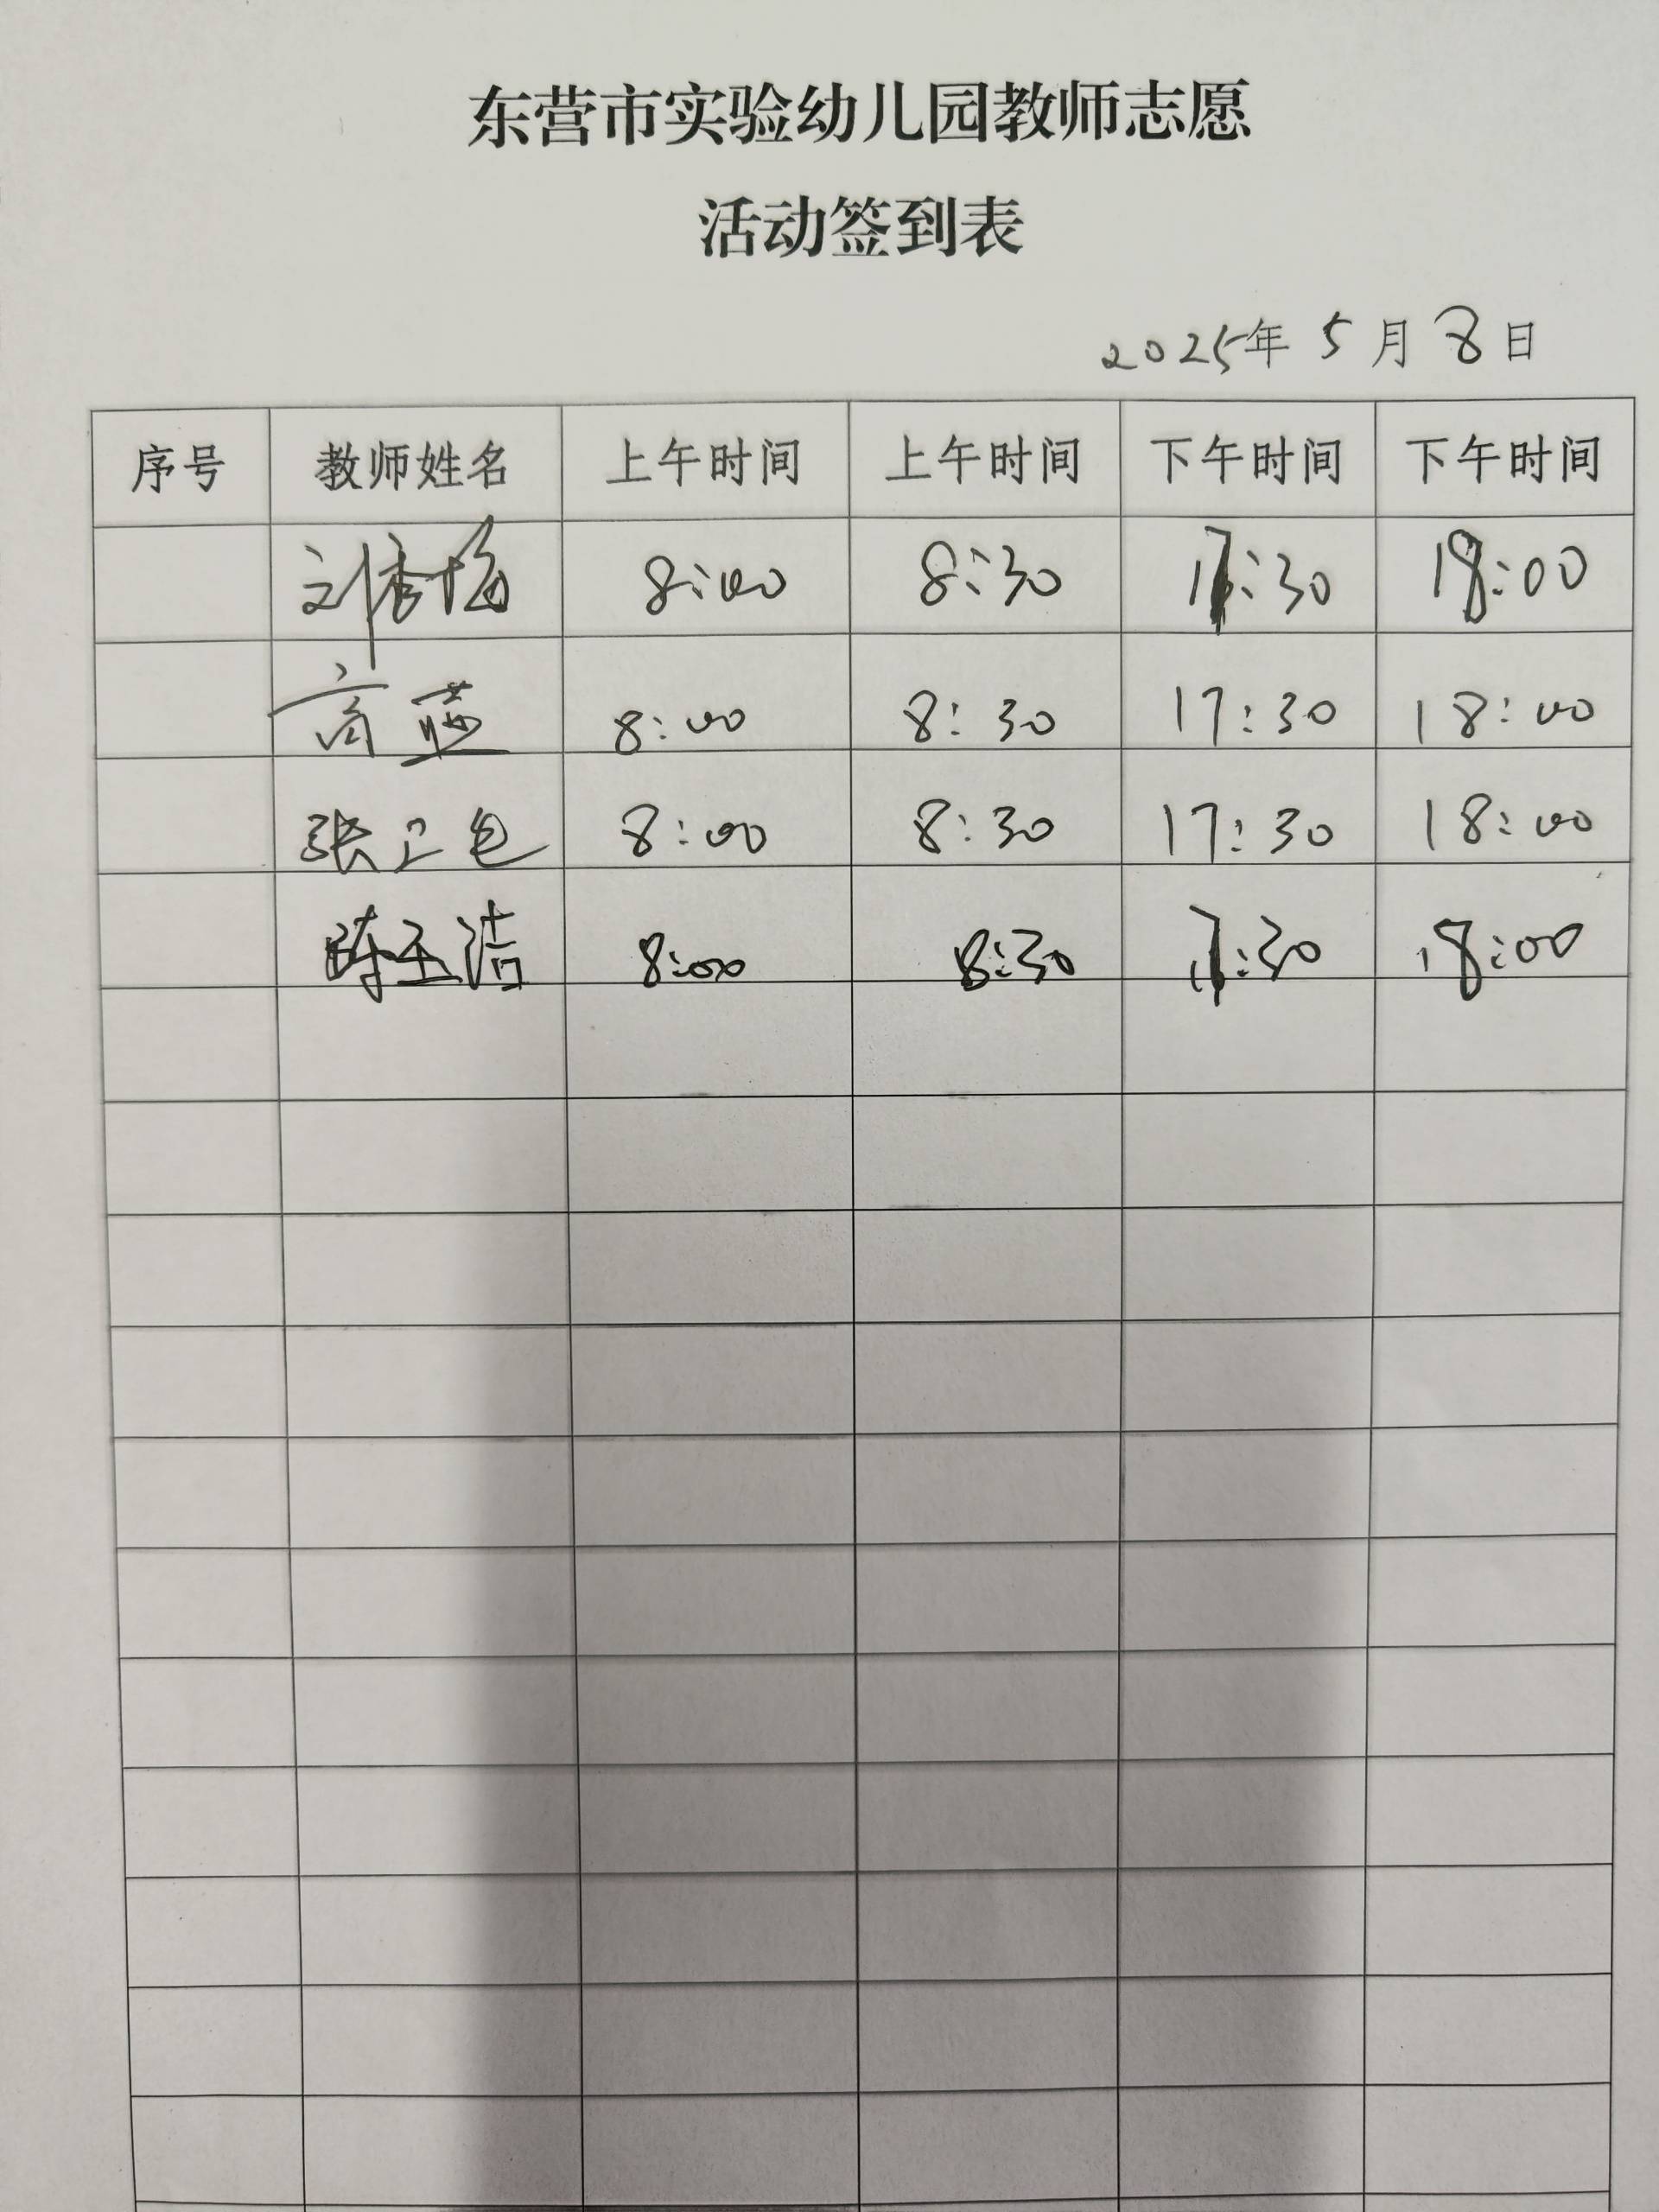 东营市实验幼儿园教师志愿
活动签到表
2025年 5 月 8 日
序号 教师姓名 上午时间 上午时间 下午时间 下午时间
刘秀梅 8:00 8:30 17:30 18:00
高蕊 8:00 8:30 17:30 18:00
张卫包 8:00 8:30 17:30 18:00
陈玉洁 8:00 8:30 17:30 18:00